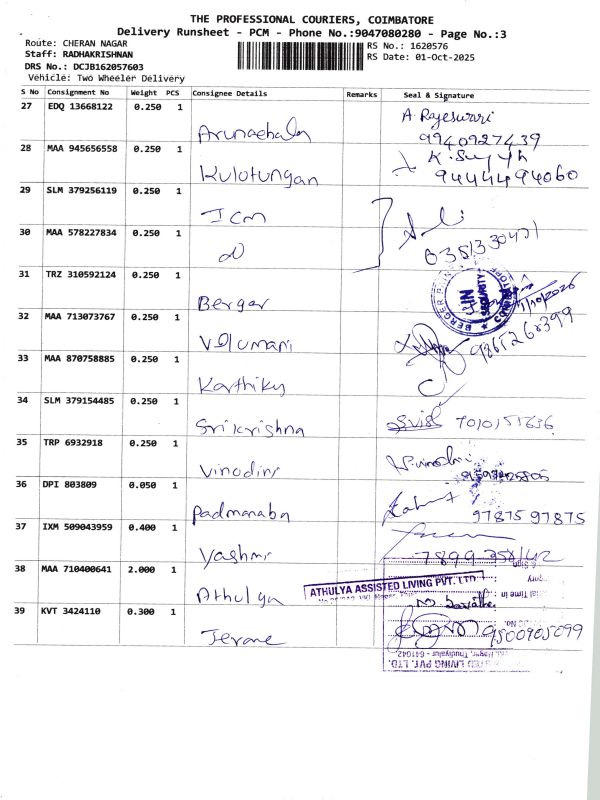 THE PROFESSIONAL COURIERS, COIMBATORE
Delivery Runsheet - PCM - Phone No.:9047080280 - Page No.:3
Route: CHERAN NAGAR
RS No.: 1620576
Staff: RADHAKRISHNAN
RS Date: 01-Oct-2025
DRS No.: DCJB162057603
Vehicle: Two Wheeler Delivery
S No Consignment No Weight PCS Consignee Details Remarks Seal & Signature
27 EDQ 13668122 0.250 1 Arunachala A Rajeswari
9940927439
28 MAA 945656558 0.250 1 Kulotungan
9444494060
29 SLM 379256119 0.250 1 Icm
30 MAA 578227834 0.250 1
31 TRZ 310592124 0.250 1 Berger
IN SECURITY
32 MAA 713073767 0.250 1
33 MAA 870758885 0.250 1 Karthiky
34 SLM 379154485 0.250 1 Srikrishna 7010151636
35 TRP 6932918 0.250 1 Vinodini
36 DPI 803809 0.050 1 Padmanaba 97875 97875
37 IXM 509043959 0.400 1 Yashmi
38 MAA 710400641 2.000 1 Athulya
ATHULYA ASSISTED LIVING PVT. LTD
39 KVT 3424110 0.300 1 Jerome 9500905099